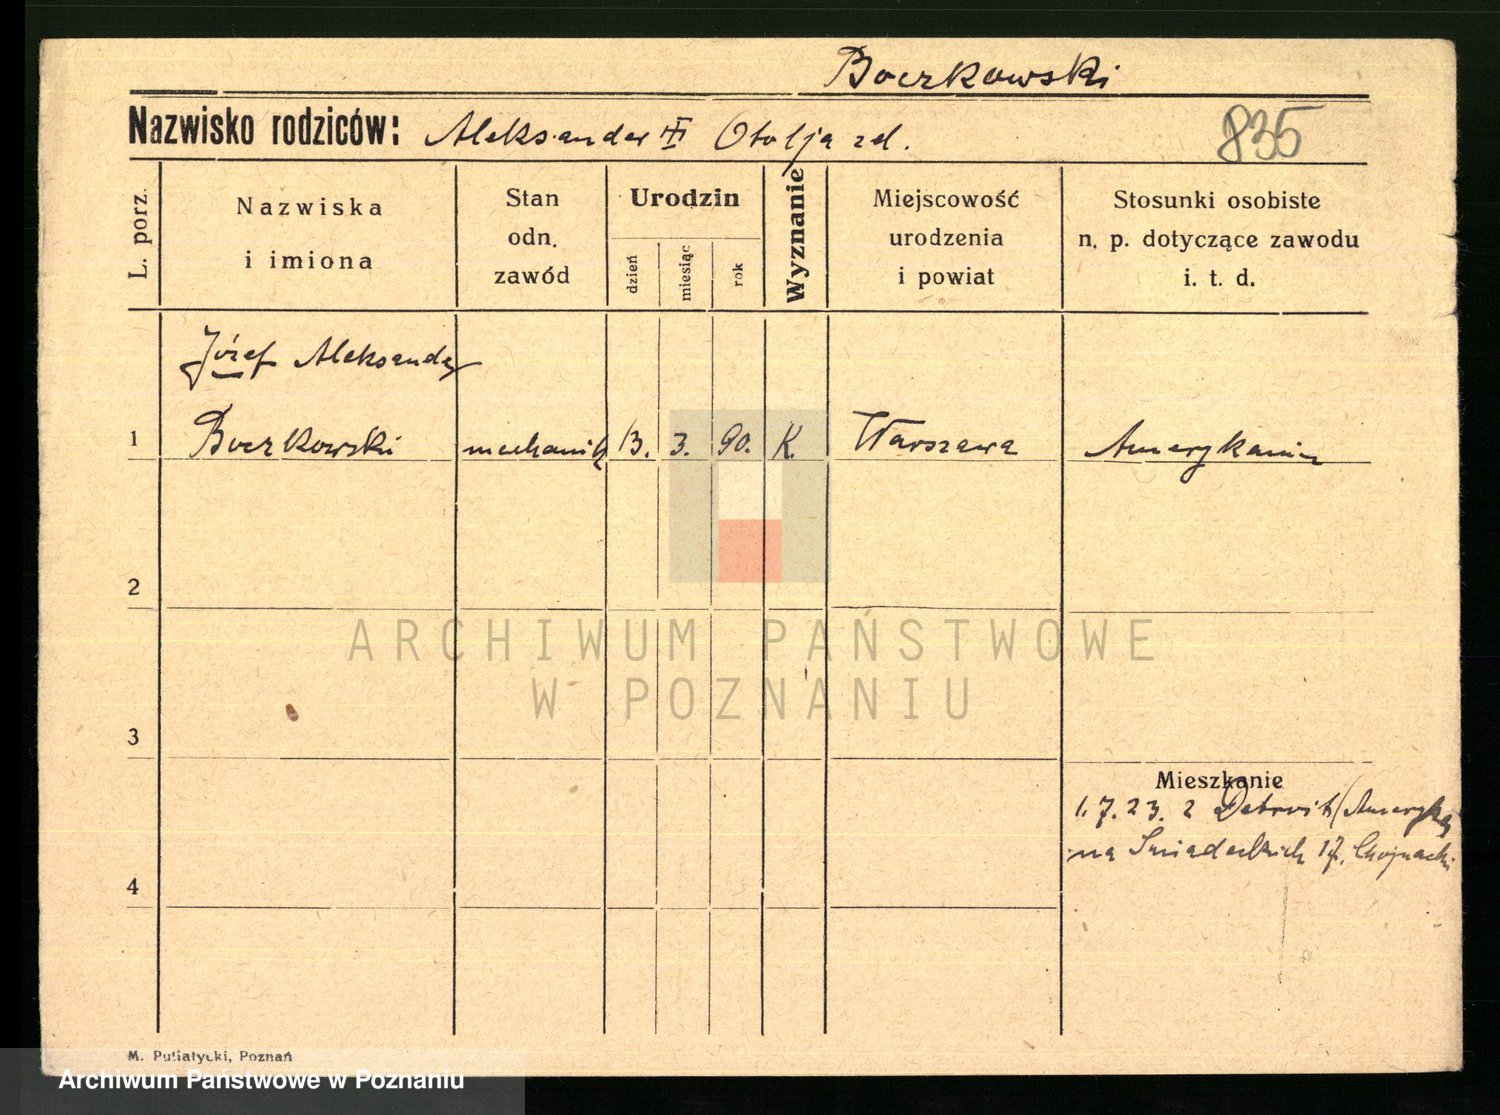 Boczkowski
Nazwisko rodziców: Aleksander Otolja zd.
835
L. porz.
Nazwiska
i imiona
Stan
odn.
zawód
Urodzin
dzień
miesiąc
rok
Wyznanie
Miejscowość
urodzenia
i powiat
Stosunki osobiste
n. p. dotyczące zawodu
i. t. d.
Józef Aleksander
1 Boczkowski mechanik 13. 3. 90. K. Warszawa Amerykanin
2
ARCHIWUM PAŃSTWOWE
W POZNANIU
3
Mieszkanie
1.7.23. z Detroit (Ameryka
na Śniadeckich 17, Chojnacki
4
M. Putiatycki, Poznań
Archiwum Państwowe w Poznaniu